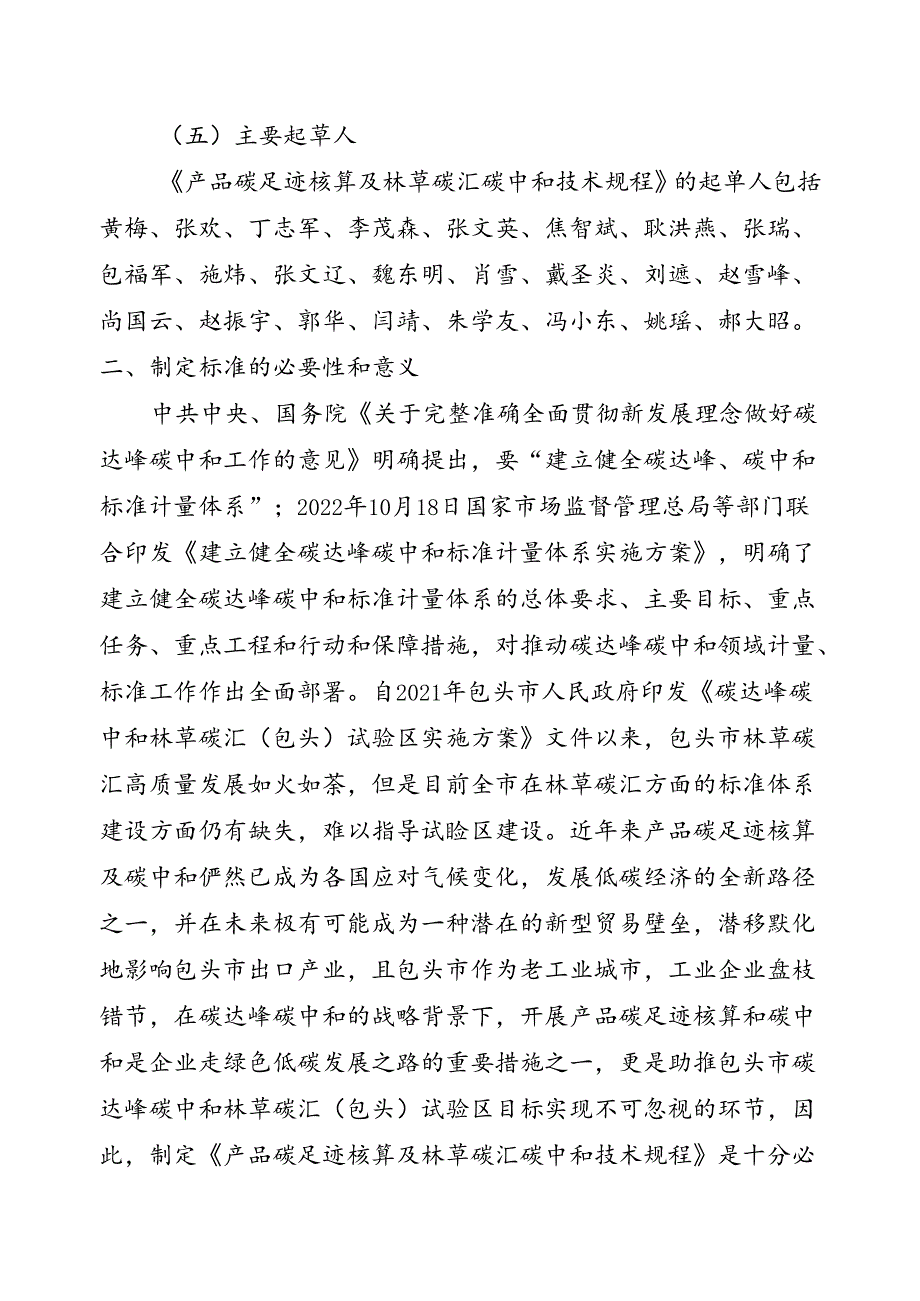 （五）主要起草人
《产品碳足迹核算及林草碳汇碳中和技术规程》的起单人包括
黄梅、张欢、丁志军、李茂森、张文英、焦智斌、耿洪燕、张瑞、
包福军、施炜、张文辽、魏东明、肖雪、戴圣炎、刘遮、赵雪峰、
尚国云、赵振宇、郭华、闫靖、朱学友、冯小东、姚瑶、郝大昭。
二、制定标准的必要性和意义
中共中央、国务院《关于完整准确全面贯彻新发展理念做好碳
达峰碳中和工作的意见》明确提出，要“建立健全碳达峰、碳中和
标准计量体系”；2022年10月18日国家市场监督管理总局等部门联
合印发《建立健全碳达峰碳中和标准计量体系实施方案》，明确了
建立健全碳达峰碳中和标准计量体系的总体要求、主要目标、重点
任务、重点工程和行动和保障措施，对推动碳达峰碳中和领域计量、
标准工作作出全面部署。自2021年包头市人民政府印发《碳达峰碳
中和林草碳汇（包头）试验区实施方案》文件以来，包头市林草碳
汇高质量发展如火如荼，但是目前全市在林草碳汇方面的标准体系
建设方面仍有缺失，难以指导试睑区建设。近年来产品碳足迹核算
及碳中和俨然已成为各国应对气候变化，发展低碳经济的全新路径
之一，并在未来极有可能成为一种潜在的新型贸易壁垒，潜移默化
地影响包头市出口产业，且包头市作为老工业城市，工业企业盘枝
错节，在碳达峰碳中和的战略背景下，开展产品碳足迹核算和碳中
和是企业走绿色低碳发展之路的重要措施之一，更是助推包头市碳
达峰碳中和林草碳汇（包头）试验区目标实现不可忽视的环节，因
此，制定《产品碳足迹核算及林草碳汇碳中和技术规程》是十分必